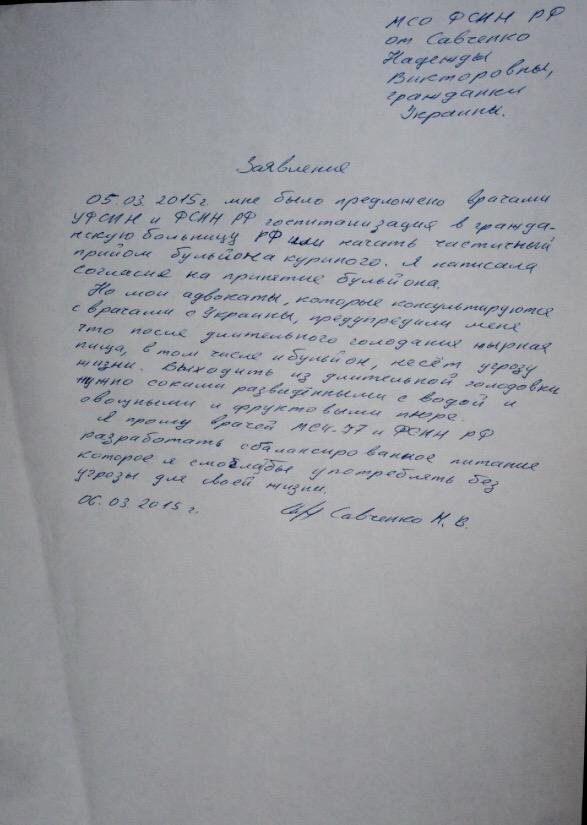 МСО ФСИН РФ
от Савченко
Надежды
Викторовны,
гражданки
Украины.
Заявление
05.03.2015г. мне было предложено врачами
УФСИН и ФСИН РФ госпитализация в гражда-
нскую больницу РФ или начать частичный
прийом бульйона куриного. Я написала
согласие на принятие бульйона.
Но мои адвокаты, которые консультируются
с врачами с Украины, предупредили меня
что после длительного голодания жырная
пища, в том числе и бульйон, несёт угрозу
жизни. Выходить из длительной голодовки
нужно соками разведёнными с водой и
овощными и фруктовыми пюре.
Я прошу врачей МСЧ-77 и ФСИН РФ
разработать сбалансированное питание
которое я смогла бы употреблять без
угрозы для своей жизни.
06.03.2015г. Савченко Н.В.